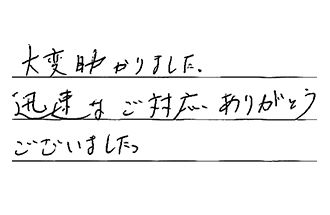 大変助かりました.
迅速なご対応、ありがとう
ございました。